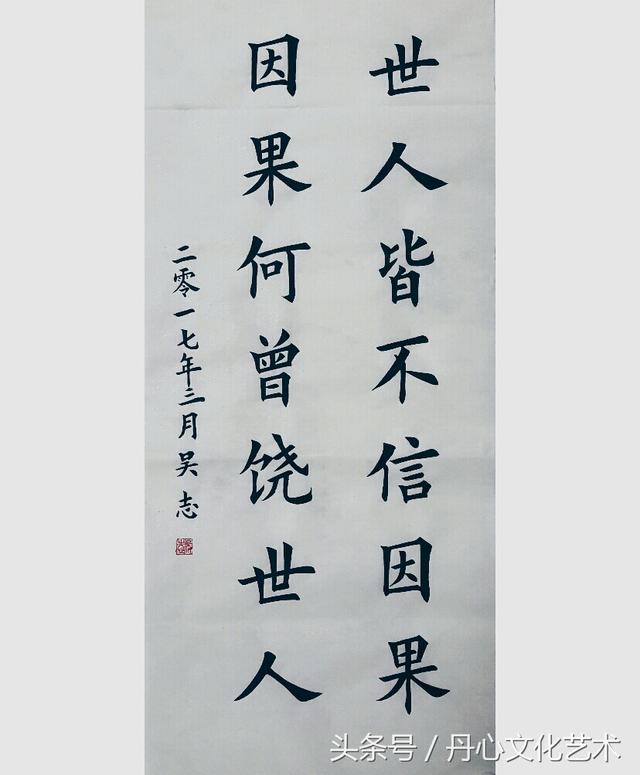 世人皆不信因果
因果何曾饶世人
二零一七年三月吴志
头条号／丹心文化艺术